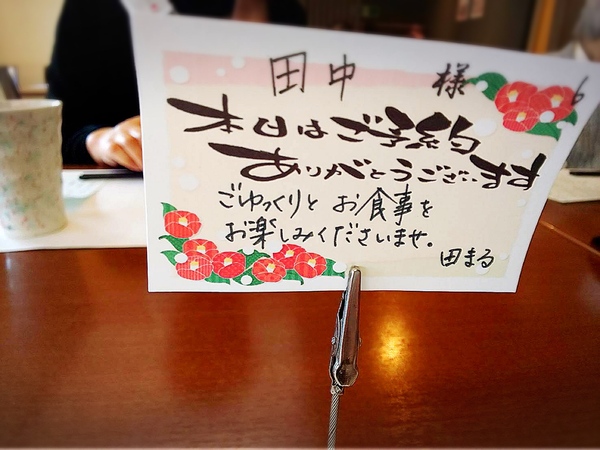 田中 様 6
本日はご予約
ありがとうございます
ごゆっくりと お食事を
お楽しみくださいませ。
田まる